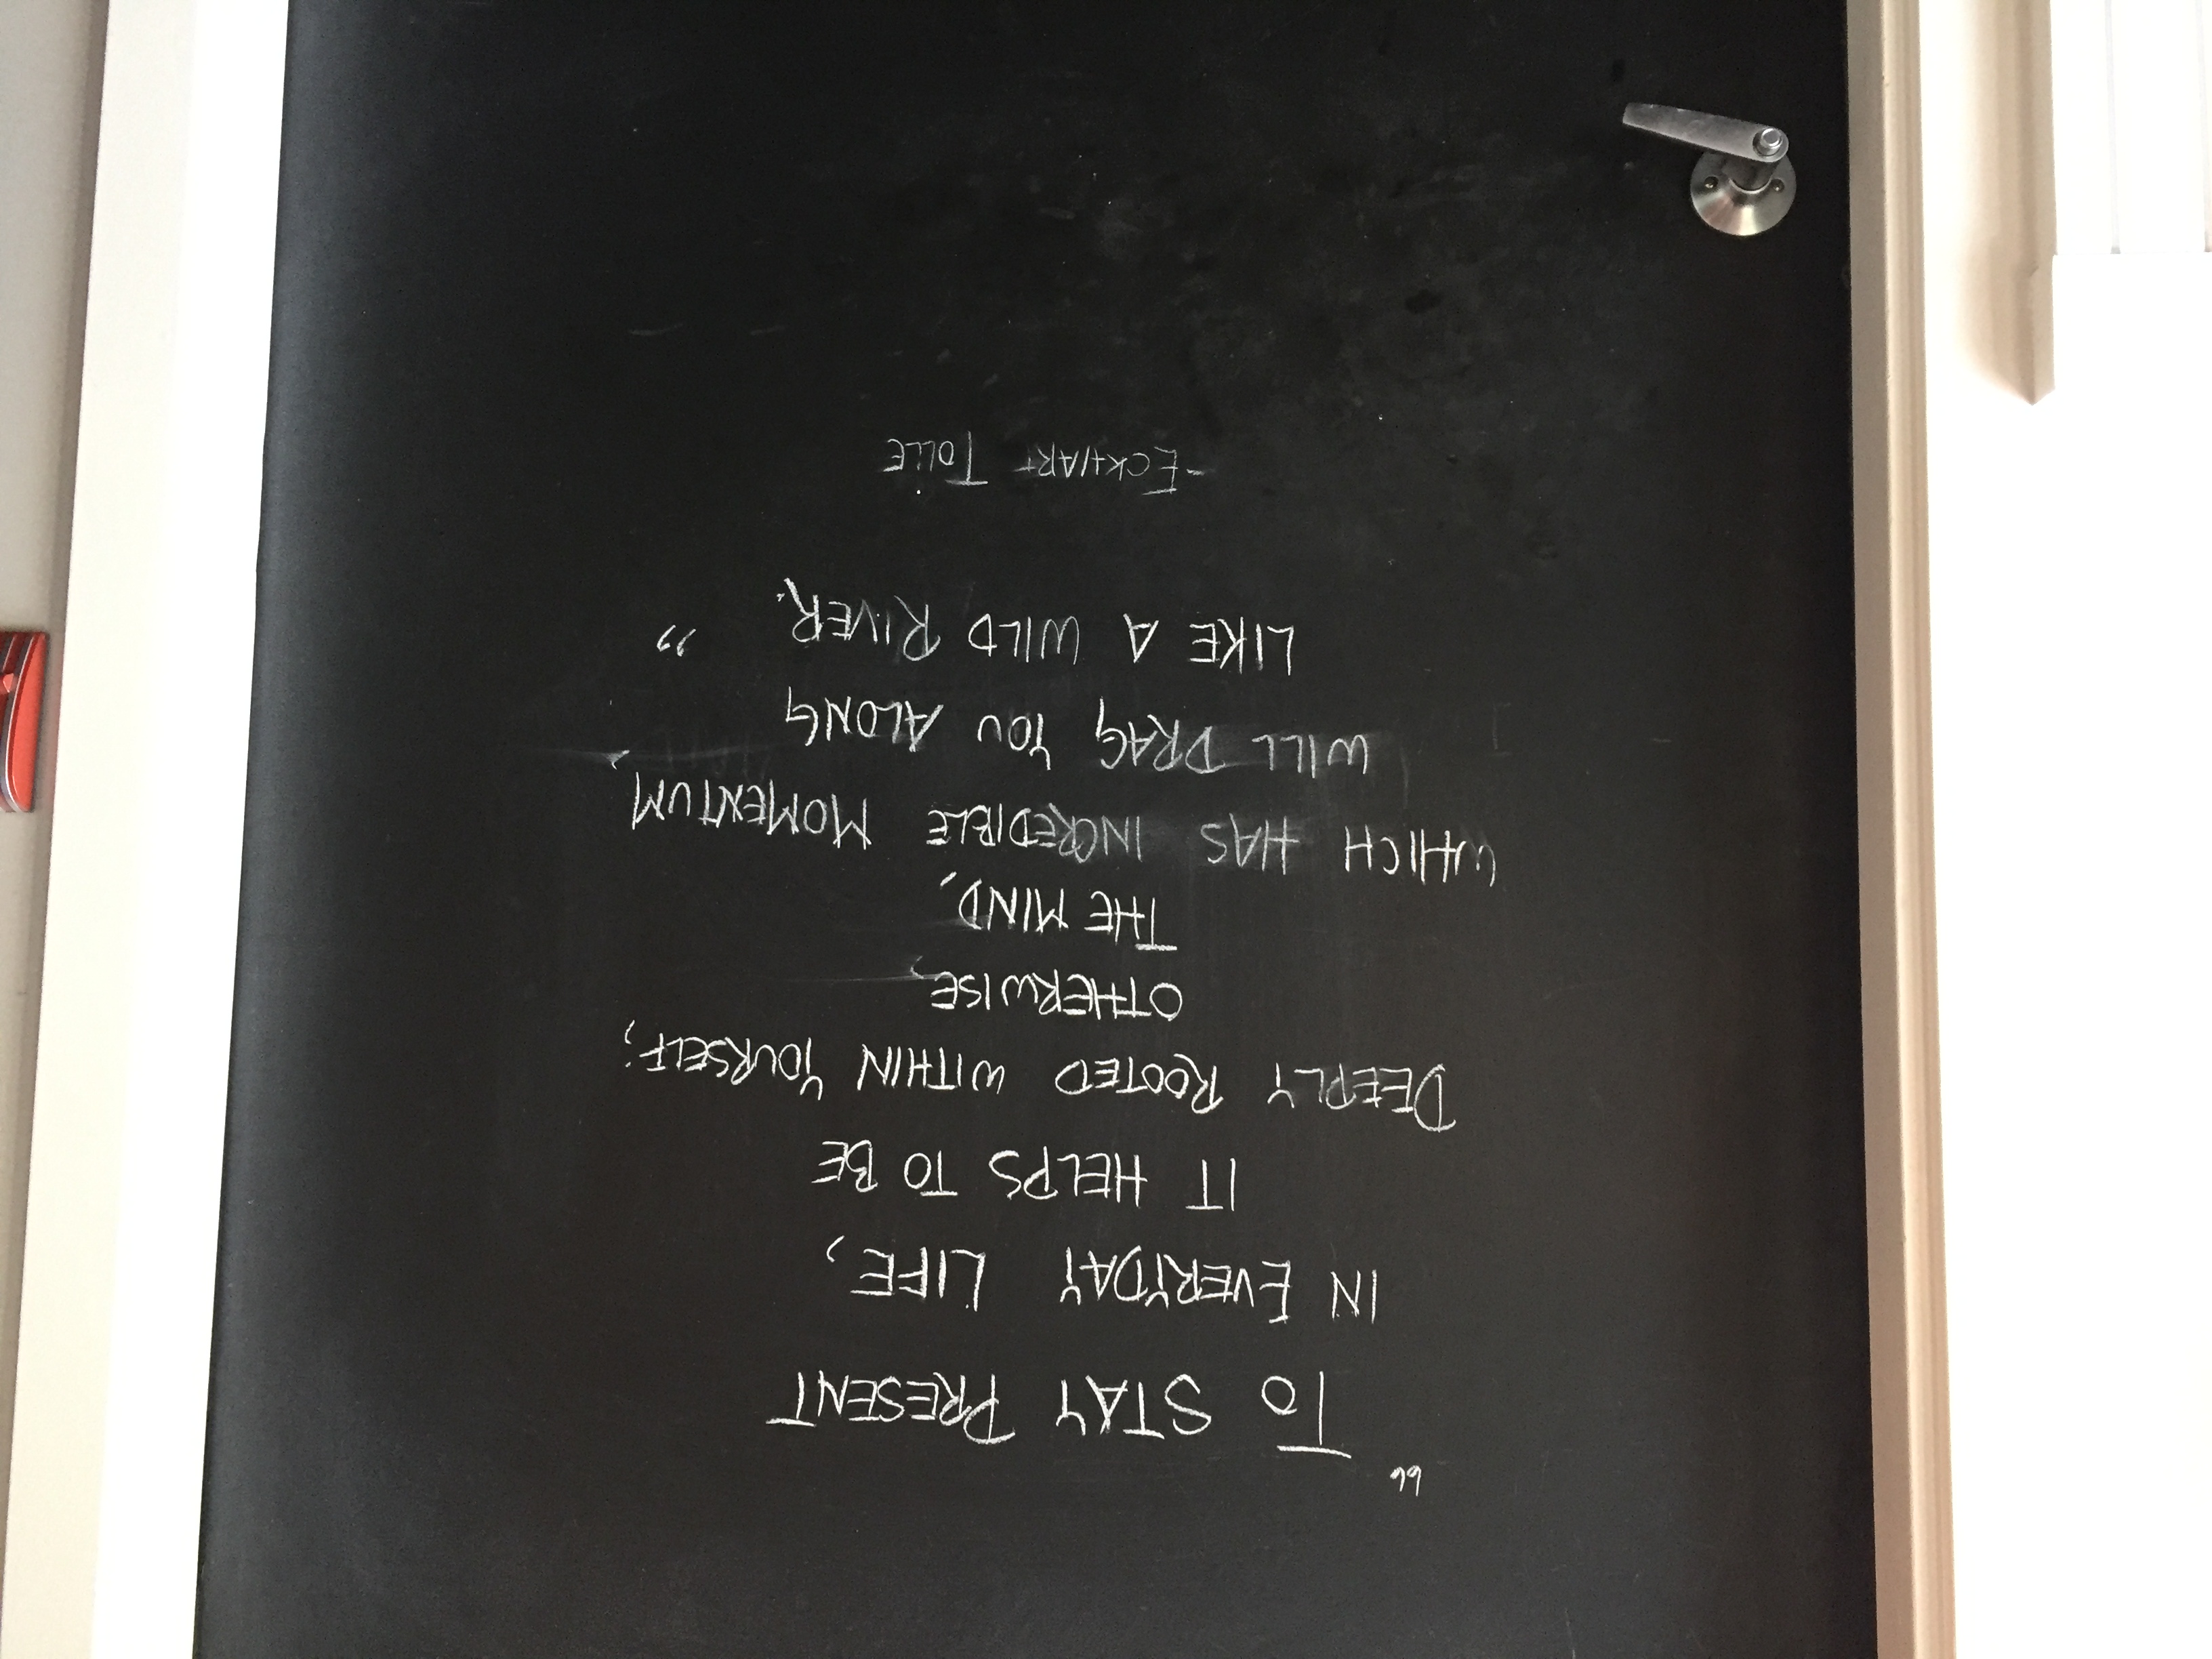 “
TO STAY PRESENT
IN EVERYDAY LIFE,
IT HELPS TO BE
DEEPLY ROOTED WITHIN YOURSELF;
OTHERWISE,
THE MIND,
WHICH HAS INCREDIBLE MOMENTUM,
WILL DRAG YOU ALONG
LIKE A WILD RIVER. ”
-ECKHART TOLLE